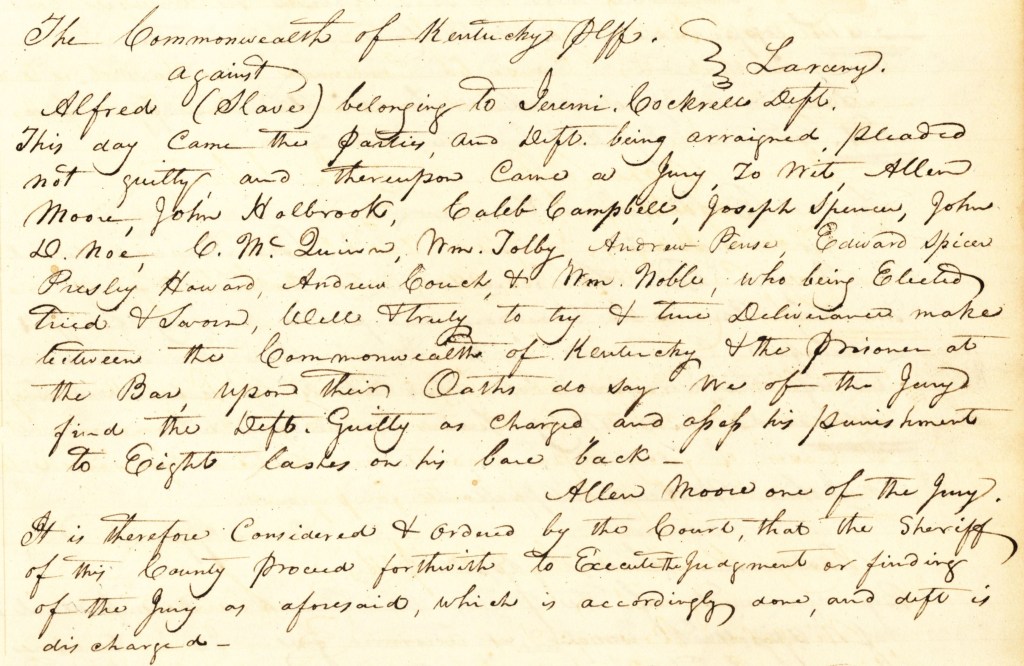 The Commonwealth of Kentucky Plff.
against } Larceny.
Alfred (Slave) belonging to Jeremi. Cockrell Deft.
This day Came the Parties, and Deft. being arraigned, pleaded
not guilty, and thereupon Came a Jury, To Wit, Allen
Moore, John Holbrook, Caleb Campbell, Joseph Spencer, John
D. Noe, C. Mc Quinn, Wm. Tolby, Andrew Pense, Edward Spicer
Presley Howard, Andrew Couch, & Wm. Noble, who being Elected
tried & Sworn, Well & truly to try & true Deliverance make
between the Commonwealth of Kentucky & the Prisoner at
the Bar, upon their Oaths do say "We of the Jury
find the Deft. Guilty as charged and assess his punishment
to Eight lashes on his bare back" –
Allen Moore one of the Jury.
It is therefore Considered & ordered by the Court, that the Sheriff
of this County Proceed forthwith to Execute the Judgment or finding
of the Jury as aforesaid, which is accordingly done, and deft is
discharged –